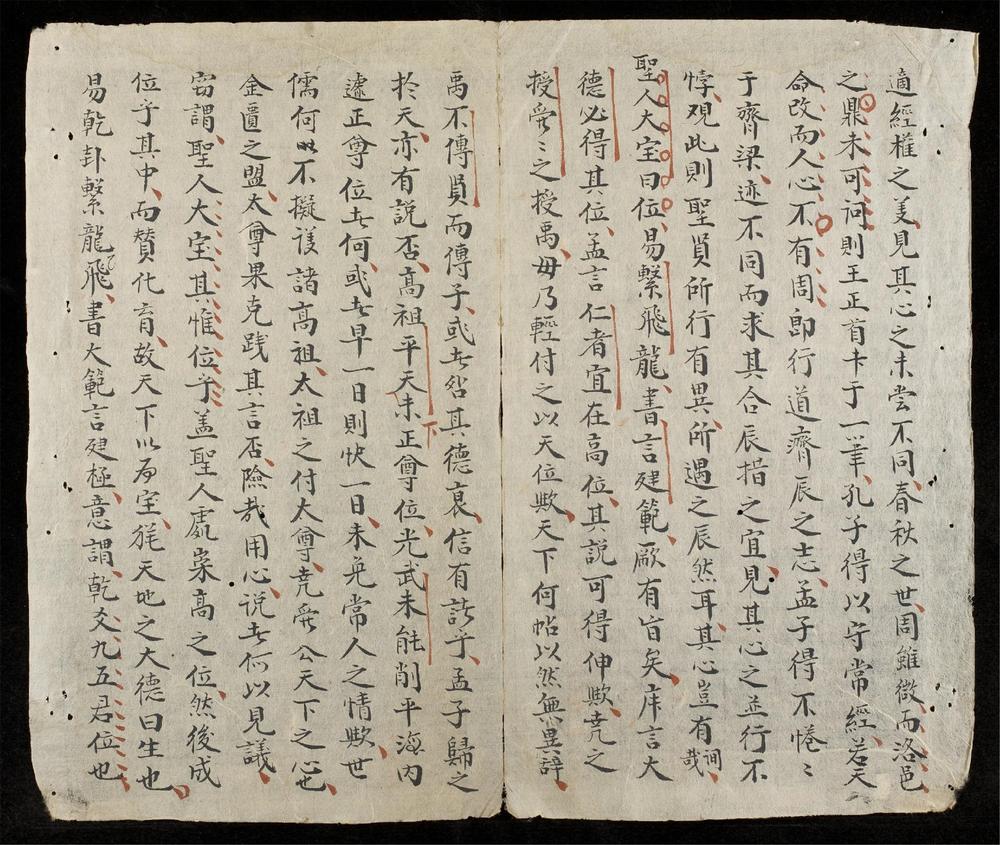 適經權之美見其心之未嘗不同春秋之世周雖微而洛邑
之鼎未可问則王正首卡于一筆孔子得以守常經若天
命改而人心不有周即行道濟辰之志孟子得不惓〻
于齊梁迹不同而求其合辰措之宜見其心之並行不
悖觀此則聖賢所行有異所遇之辰然耳其心豈有间哉
聖人大宝曰位易繫飛龍書言建範厥有旨矣庠言大
德必得其位孟言仁者宜在高位其說可得伸歟尭之
授舜〻之授禹毋乃輕付之以天位歟天下何帖以然無異辞
禹不傳賢而傳子或者咎其德衰信有諸乎孟子歸之
於天亦有説否高祖平天下未正尊位光武未能削平海内
遽正尊位者何或者早一日則快一日未免常人之情歟世
儒何以不擬議諸高祖太祖之付大尊尭舜公天下之心也
金匱之盟太尊果克践其言否險哉用心説者何以見議
窃謂聖人大宝其惟位乎盖聖人處崇高之位然後成
位乎其中而賛化育故天下以为宝旄天地之大德曰生也
易乾卦繫龍飛書大範言建極意謂乾爻九五君位也